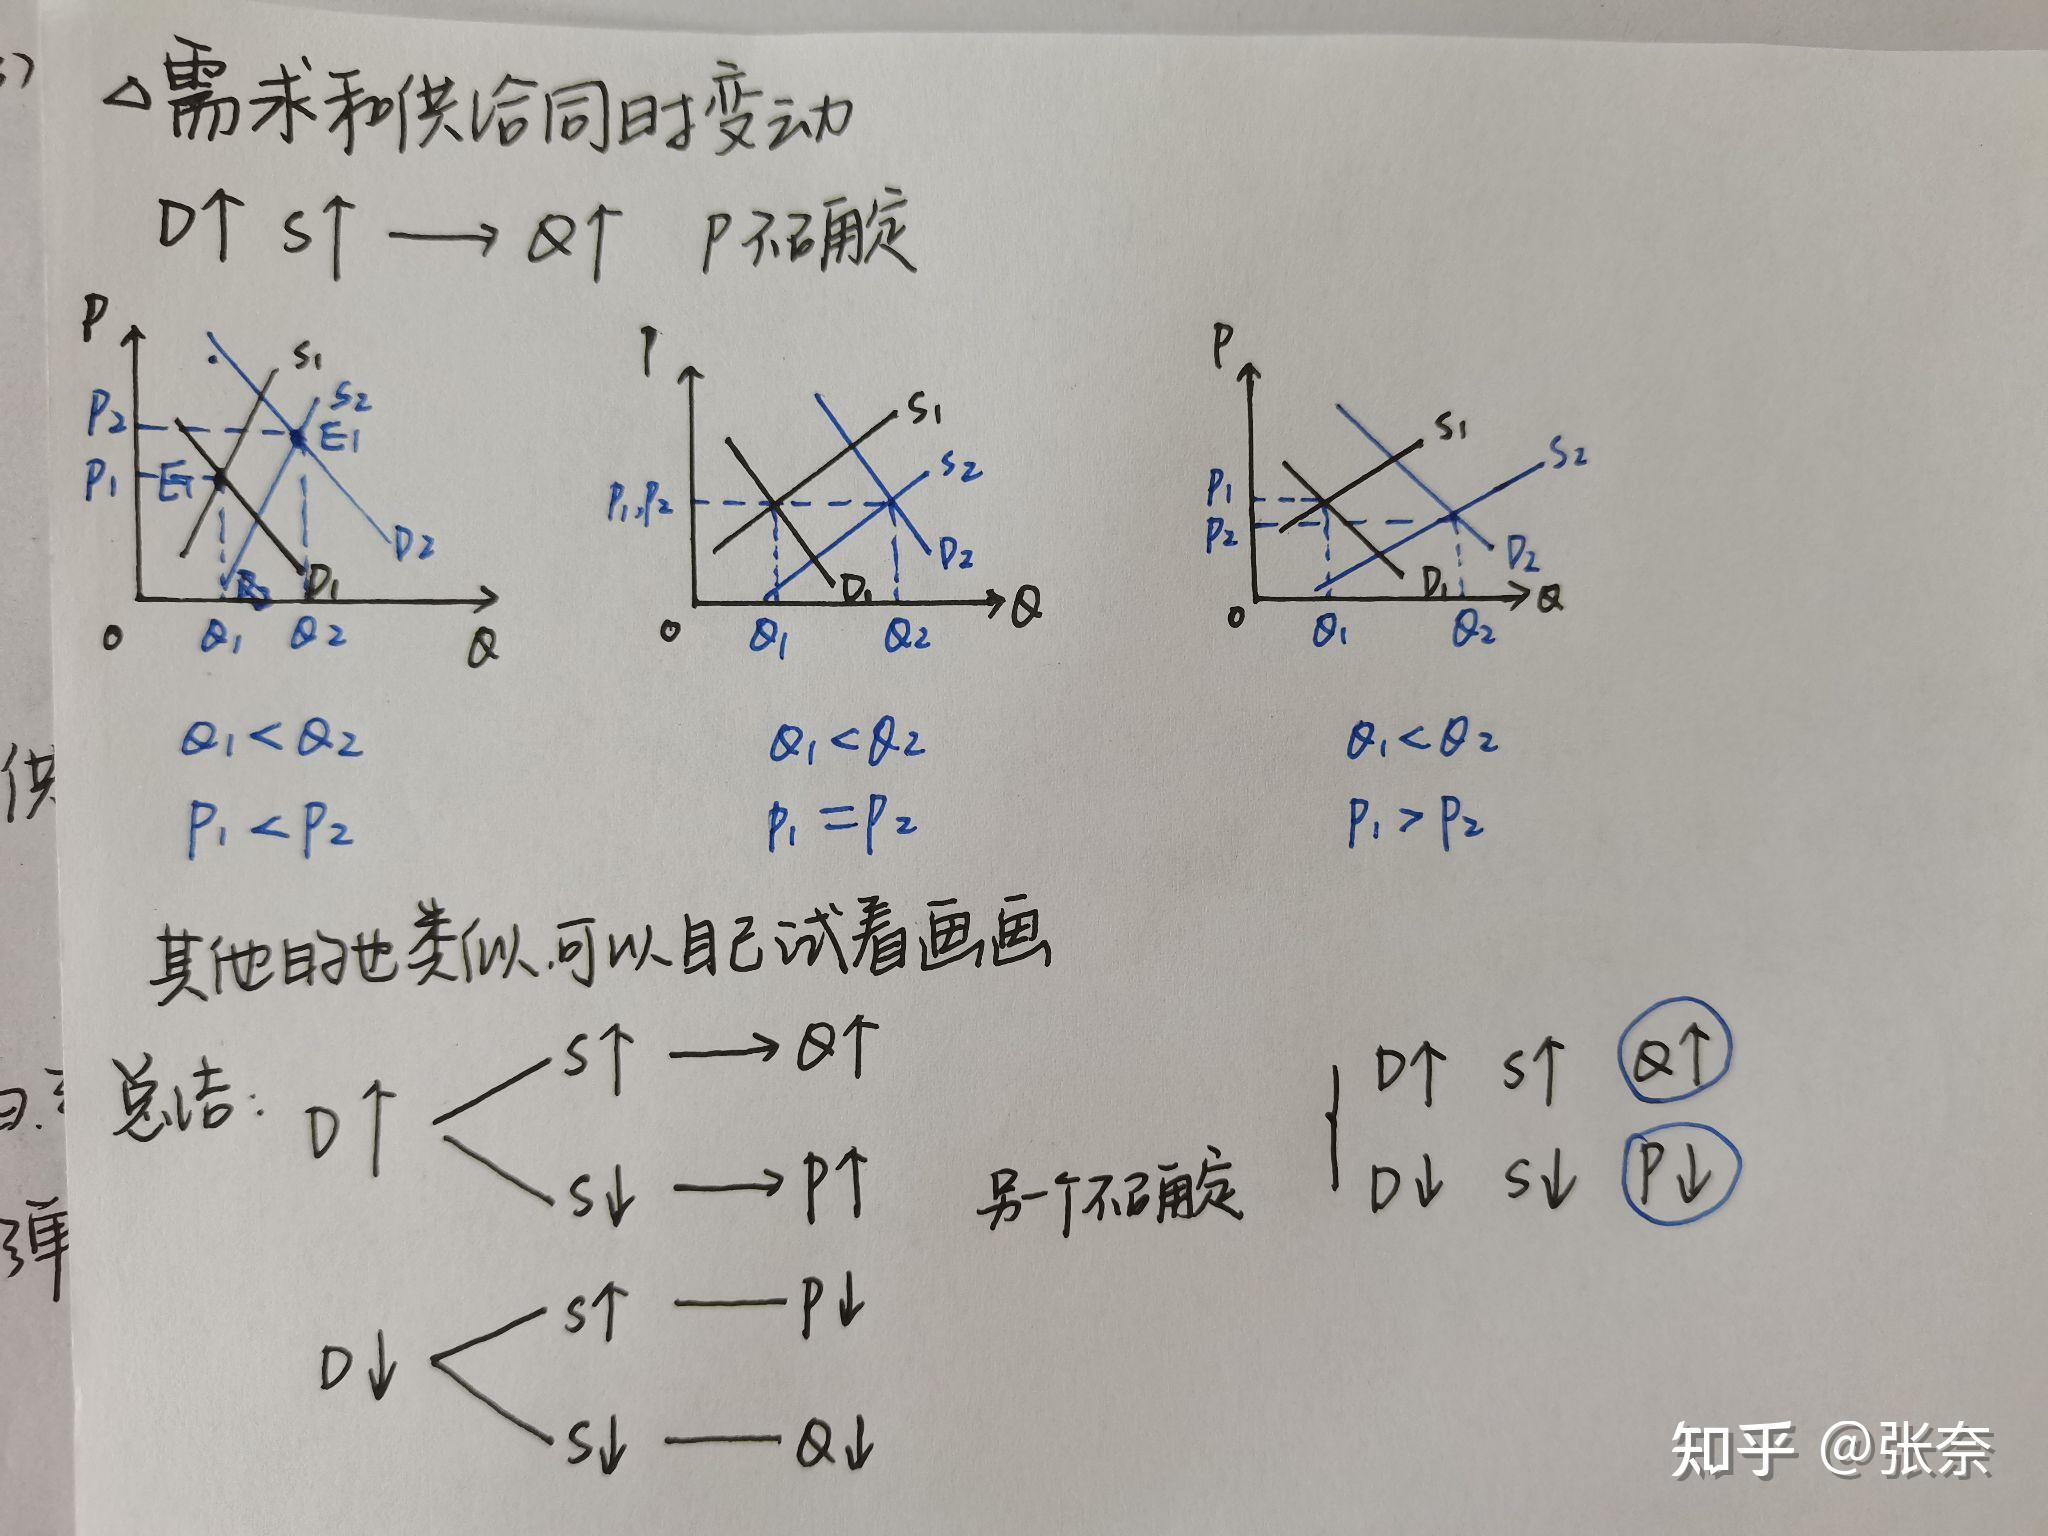 △需求和供给同时变动
D↑ S↑ ⟶ Q↑ P不确定
P
S1
S2
P2
E1
P1
E1
D2
D1
0
Q1
Q2
Q
P
S1
S2
P1,P2
D2
D1
0
Q1
Q2
Q
P
S1
S2
P1
P2
D2
D1
0
Q1
Q2
Q
Q1<Q2
Q1<Q2
Q1<Q2
P1<P2
P1=P2
P1>P2
其他的也类似,可以自己试着画画
总结:
D↑
S↑ ⟶ Q↑
S↓ ⟶ P↑
另一个不确定
D↑ S↑ Q↑
D↓ S↓ P↓
D↓
S↑ — P↓
S↓ — Q↓
知乎 @张奈
供
弹